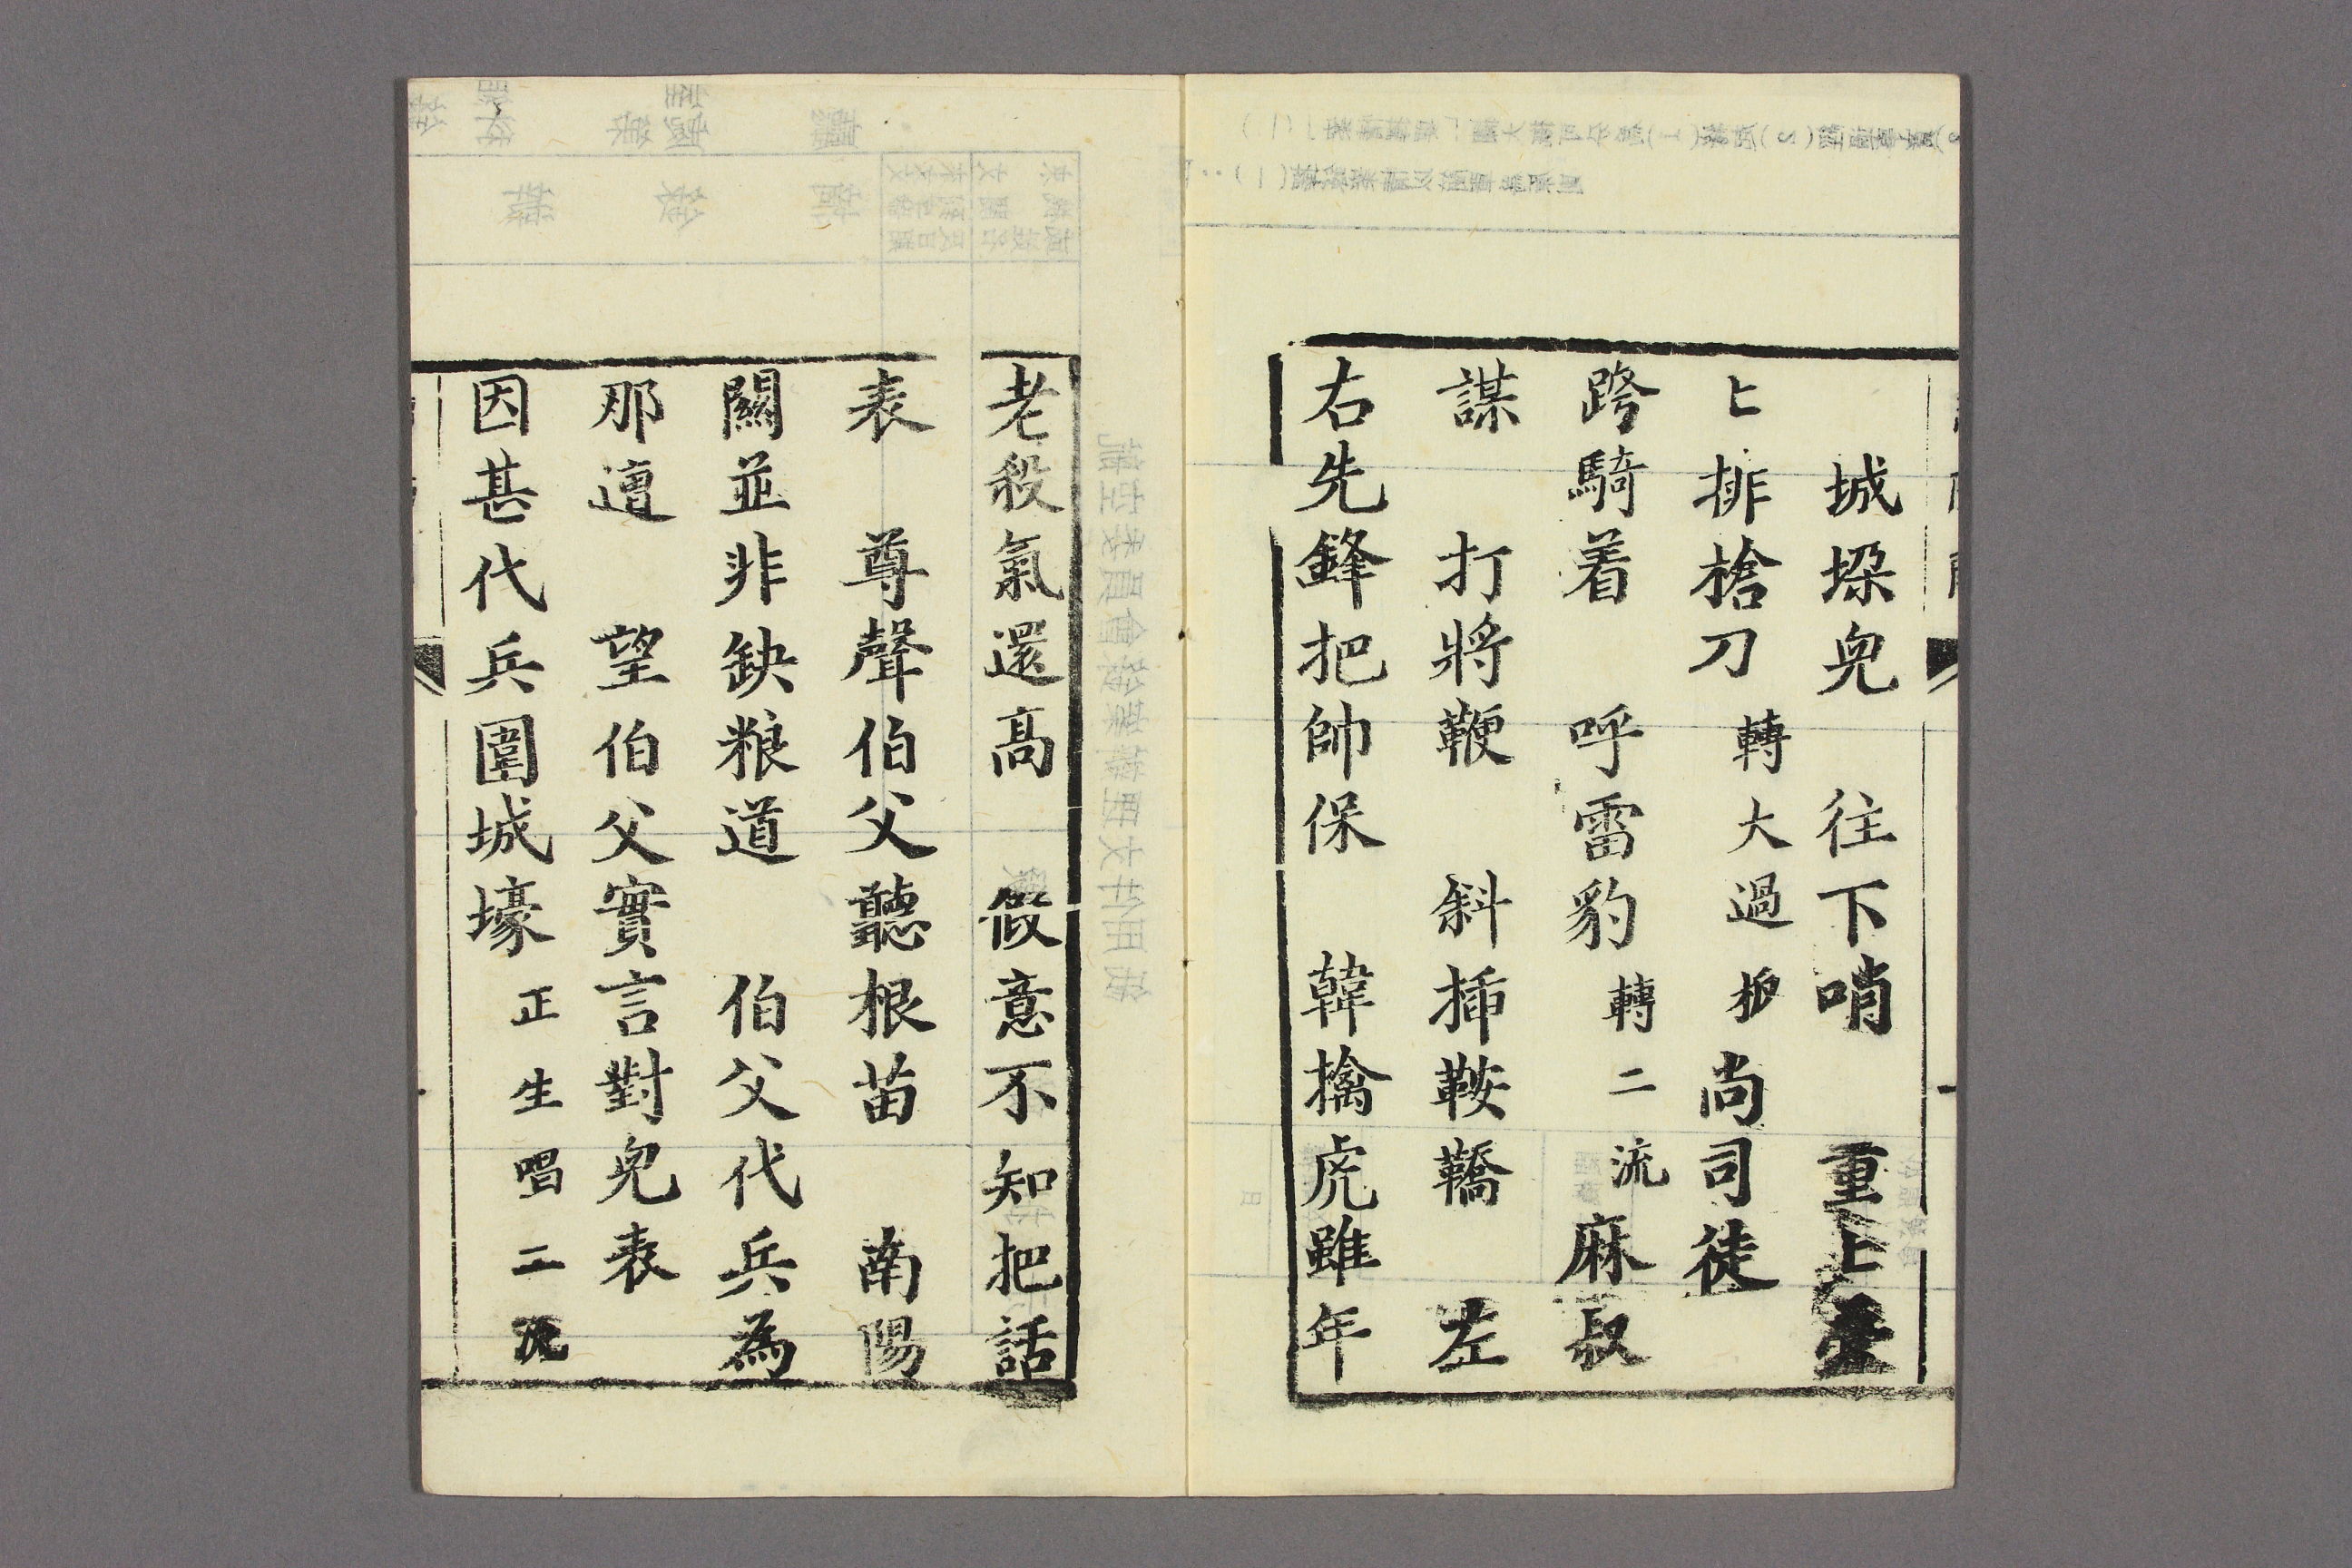 城垛兒　往下哨　重上重
匕排槍刀　轉大過板　尚司徒
跨騎着　呼雷豹　轉二流　麻叔
謀　打將鞭　斜揷鞍鞽　左
右先鋒把帥保　韓擒虎雖年
老殺氣還高　假意不知把話
表　尊聲伯父聽根苗　南陽
關並非缺粮道　伯父代兵為
那邅　望伯父實言對兒表
因甚代兵圍城壕　正生唱二流